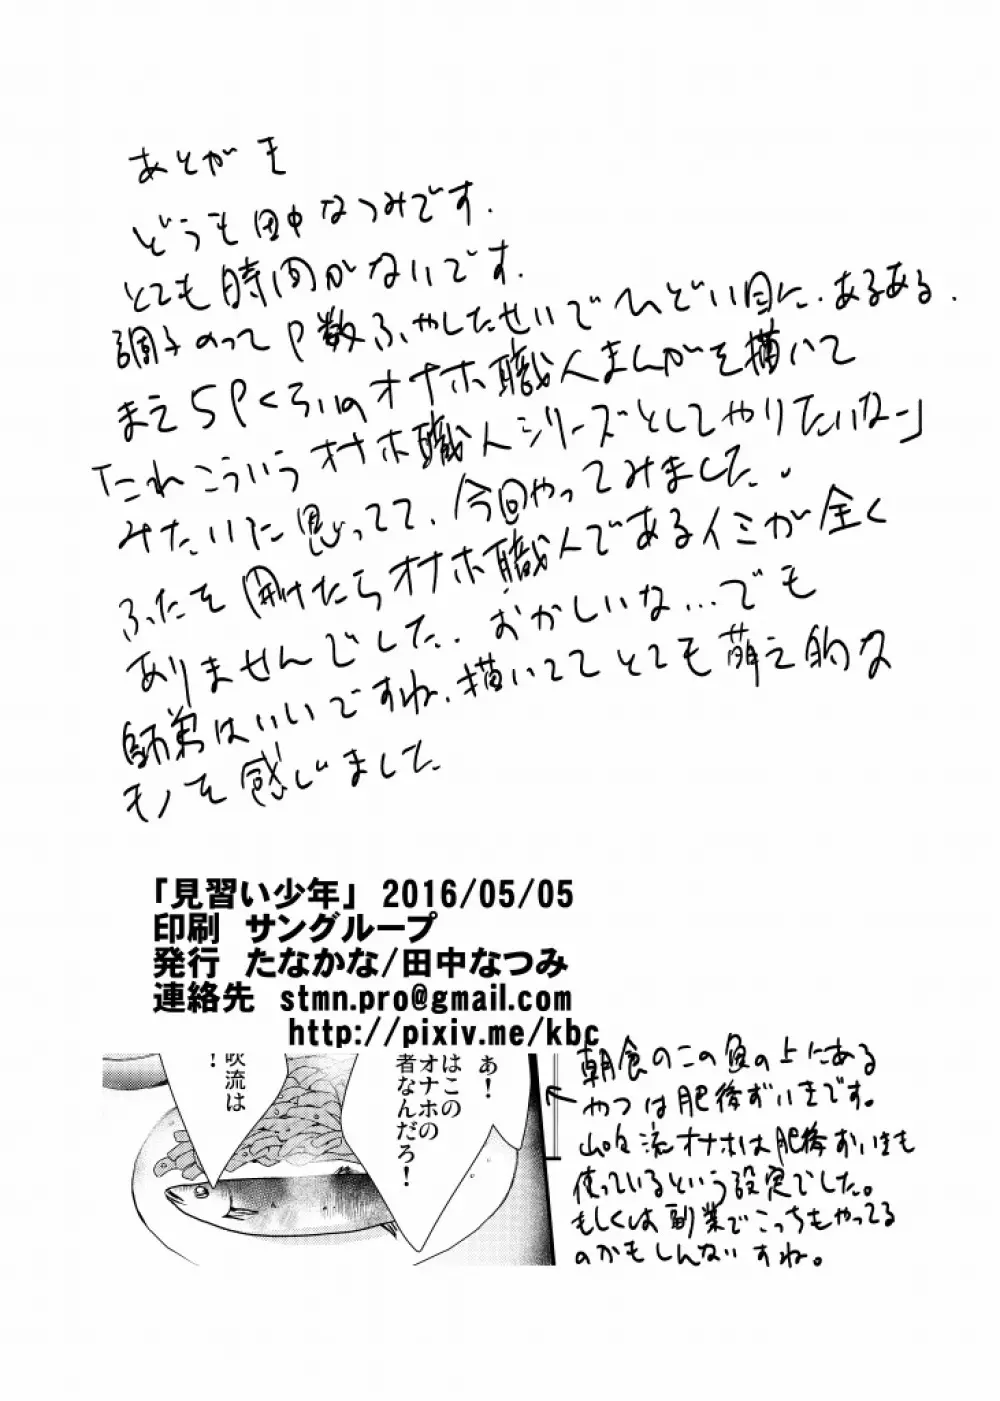 あとがき
どうも田中なつみです.
とても時間がないです.
調子のってP数ふやしたせいでひどい目に.あるある.
まえ5Pくらいのオナホ職人まんがを描いて
「これこういうオナホ職人シリーズとしてやりたいなー」
みたいに思ってて、今回やってみました.
ふたを開けたらオナホ職人であるイミが全く
ありませんでした.おかしいな…でも
師弟はいいですね.描いててとても萌え的な
モノを感じました
「見習い少年」 2016/05/05
印刷 サングループ
発行 たなかな/田中なつみ
連絡先 stmn.pro@gmail.com
http://pixiv.me/kbc
ぁ!
はこの
オナホの
者なんだろ!
吹流は
!
朝食のこの魚の上にある
やつは肥後ずいきです。
流オナホは肥後ずいきも
使っているという設定でした。
もしくは副業でこっちもやってる
のかもしんないすね。